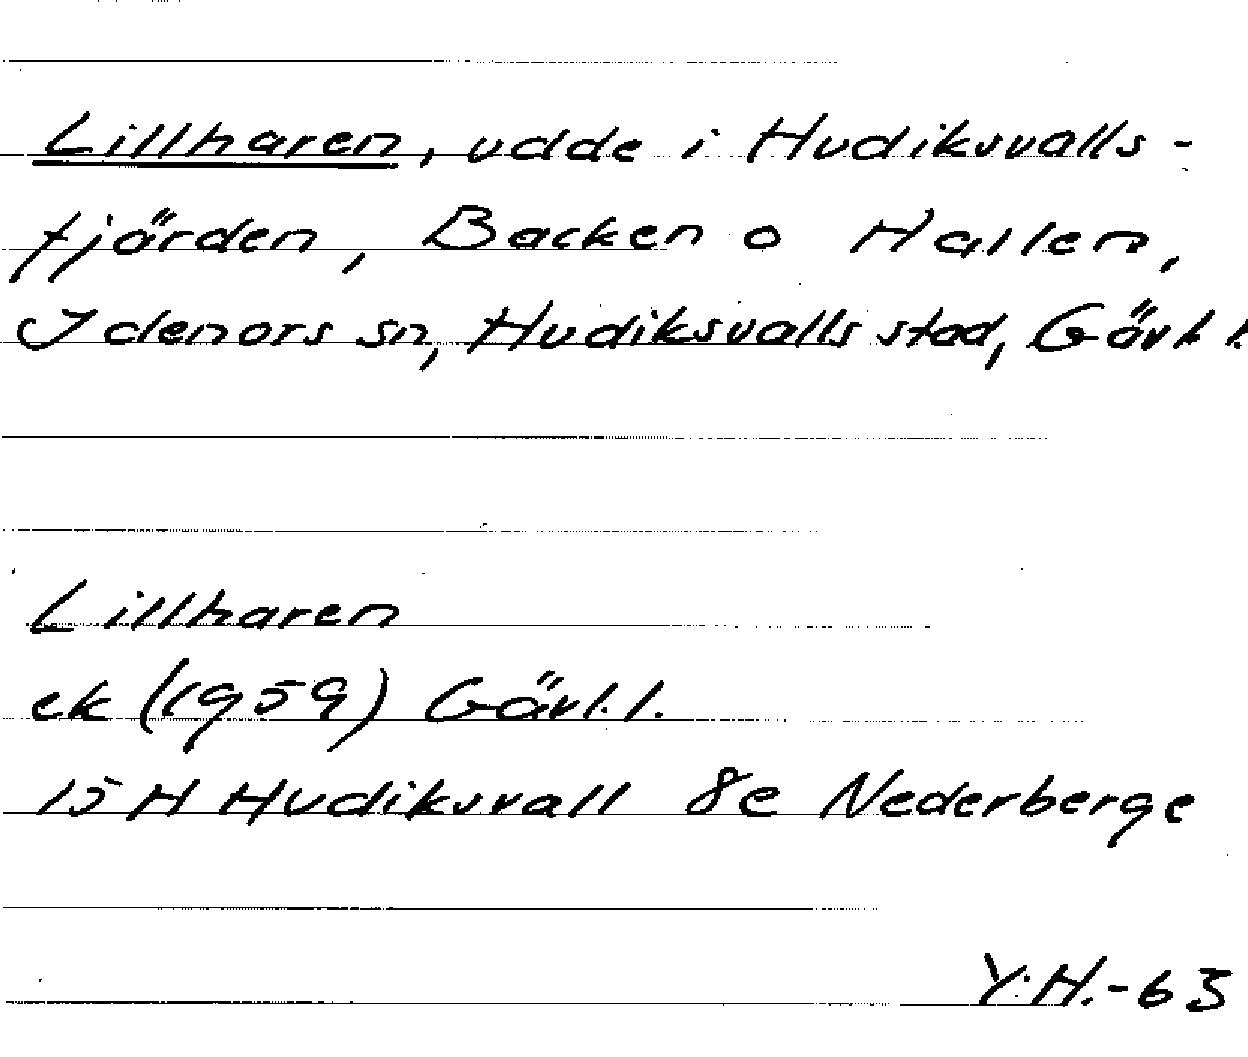 Lillharen, udde i Hudiksvalls-
fjärden, Backen o Hallen,
Idenors sn, Hudiksvalls stad, Gävl. l.
Lillharen
ek (1959) Gävl. l.
15 H Hudiksvall 8e Nederberge
Y.H.-63